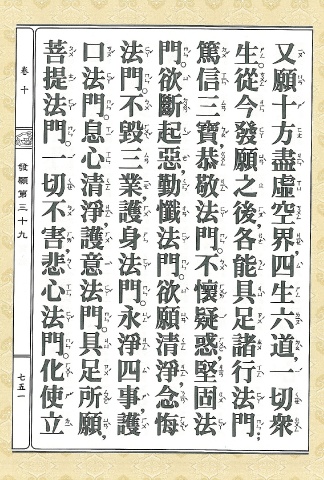 又願十方盡虛空界,四生六道,一切衆
生從今發願之後,各能具足諸行法門,
篤信三寶,恭敬法門。不懷疑惑,堅固法
門。欲斷起惡,勤懺法門。欲願清淨,念悔
法門。不毀三業,護身法門。永淨四事,護
口法門。息心清淨,護意法門。具足所願,
菩提法門。一切不害,悲心法門。化使立
卷十
發願第三十九
七五一